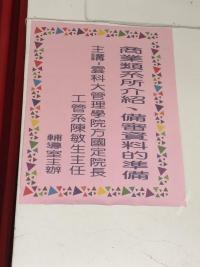 商業類系所介紹、備審資料的準備
主講-雲科大管理學院方國定院長
工管系陳敏生主任
輔導室主辦